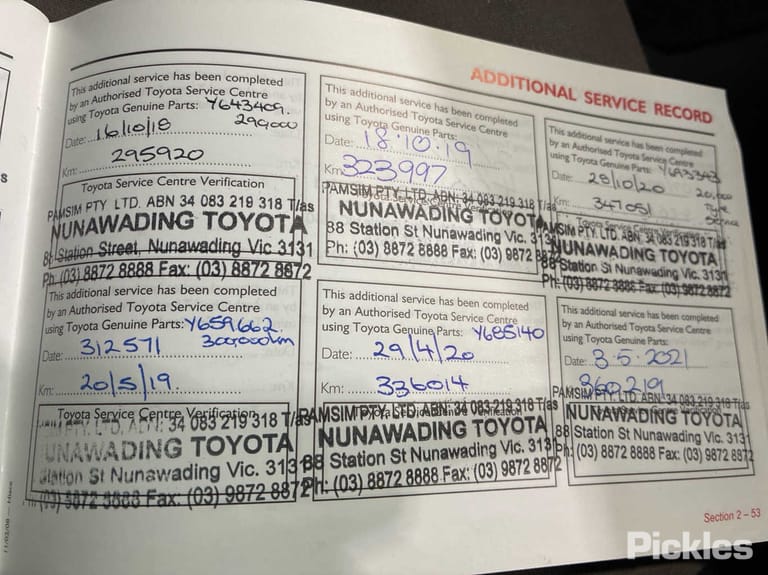 ADDITIONAL SERVICE RECORD
This additional service has been completed
by an Authorised Toyota Service Centre
using Toyota Genuine Parts: Y643409.
Date: 16/10/18 290,000
Km: 295920
Toyota Service Centre Verification
PAMSIM PTY. LTD. ABN 34 083 219 318 T/as
NUNAWADING TOYOTA
88 Station Street, Nunawading Vic 3131
Ph: (03) 8872 8888 Fax: (03) 8872 8872
This additional service has been completed
by an Authorised Toyota Service Centre
using Toyota Genuine Parts: Y659662.
Date: 312571 300,000km
Km: 20/5/19.
Toyota Service Centre Verification
34 083 219 318 T/as
NUNAWADING TOYOTA
Station St Nunawading Vic. 3131
(03) 8872 8888 Fax: (03) 9872 8872
This additional service has been completed
by an Authorised Toyota Service Centre
using Toyota Genuine Parts:
Date: 18.10.19
Km: 323997
PAMSIM PTY. LTD. ABN: 34 083 219 318 T/as
NUNAWADING TOYOTA
88 Station St Nunawading Vic. 3131
Ph: (03) 8872 8888 Fax: (03) 9872 8872
This additional service has been completed
by an Authorised Toyota Service Centre
using Toyota Genuine Parts: Y685140
Date: 29/4/20
Km: 336014
PAMSIM PTY. LTD. ABN: 34 083 219 318 T/as
NUNAWADING TOYOTA
88 Station St Nunawading Vic. 3131
Ph: (03) 8872 8888 Fax: (03) 9872 8872
This additional service has been completed
by an Authorised Toyota Service Centre
using Toyota Genuine Parts: Y693343
Date: 29/10/20 20,000
Km: 347051 Type
Service
PAMSIM PTY. LTD. ABN: 34 083 219 318 T/as
NUNAWADING TOYOTA
88 Station St Nunawading Vic. 3131
Ph: (03) 8872 8888 Fax: (03) 9872 8872
This additional service has been completed
by an Authorised Toyota Service Centre
using Toyota Genuine Parts:
Date: 3.5.2021
360219
PAMSIM PTY. LTD. ABN: 34 083 219 318 T/as
NUNAWADING TOYOTA
88 Station St Nunawading Vic. 3131
Ph: (03) 8872 8888 Fax: (03) 9872 8872
Section 2 – 53
Pickles